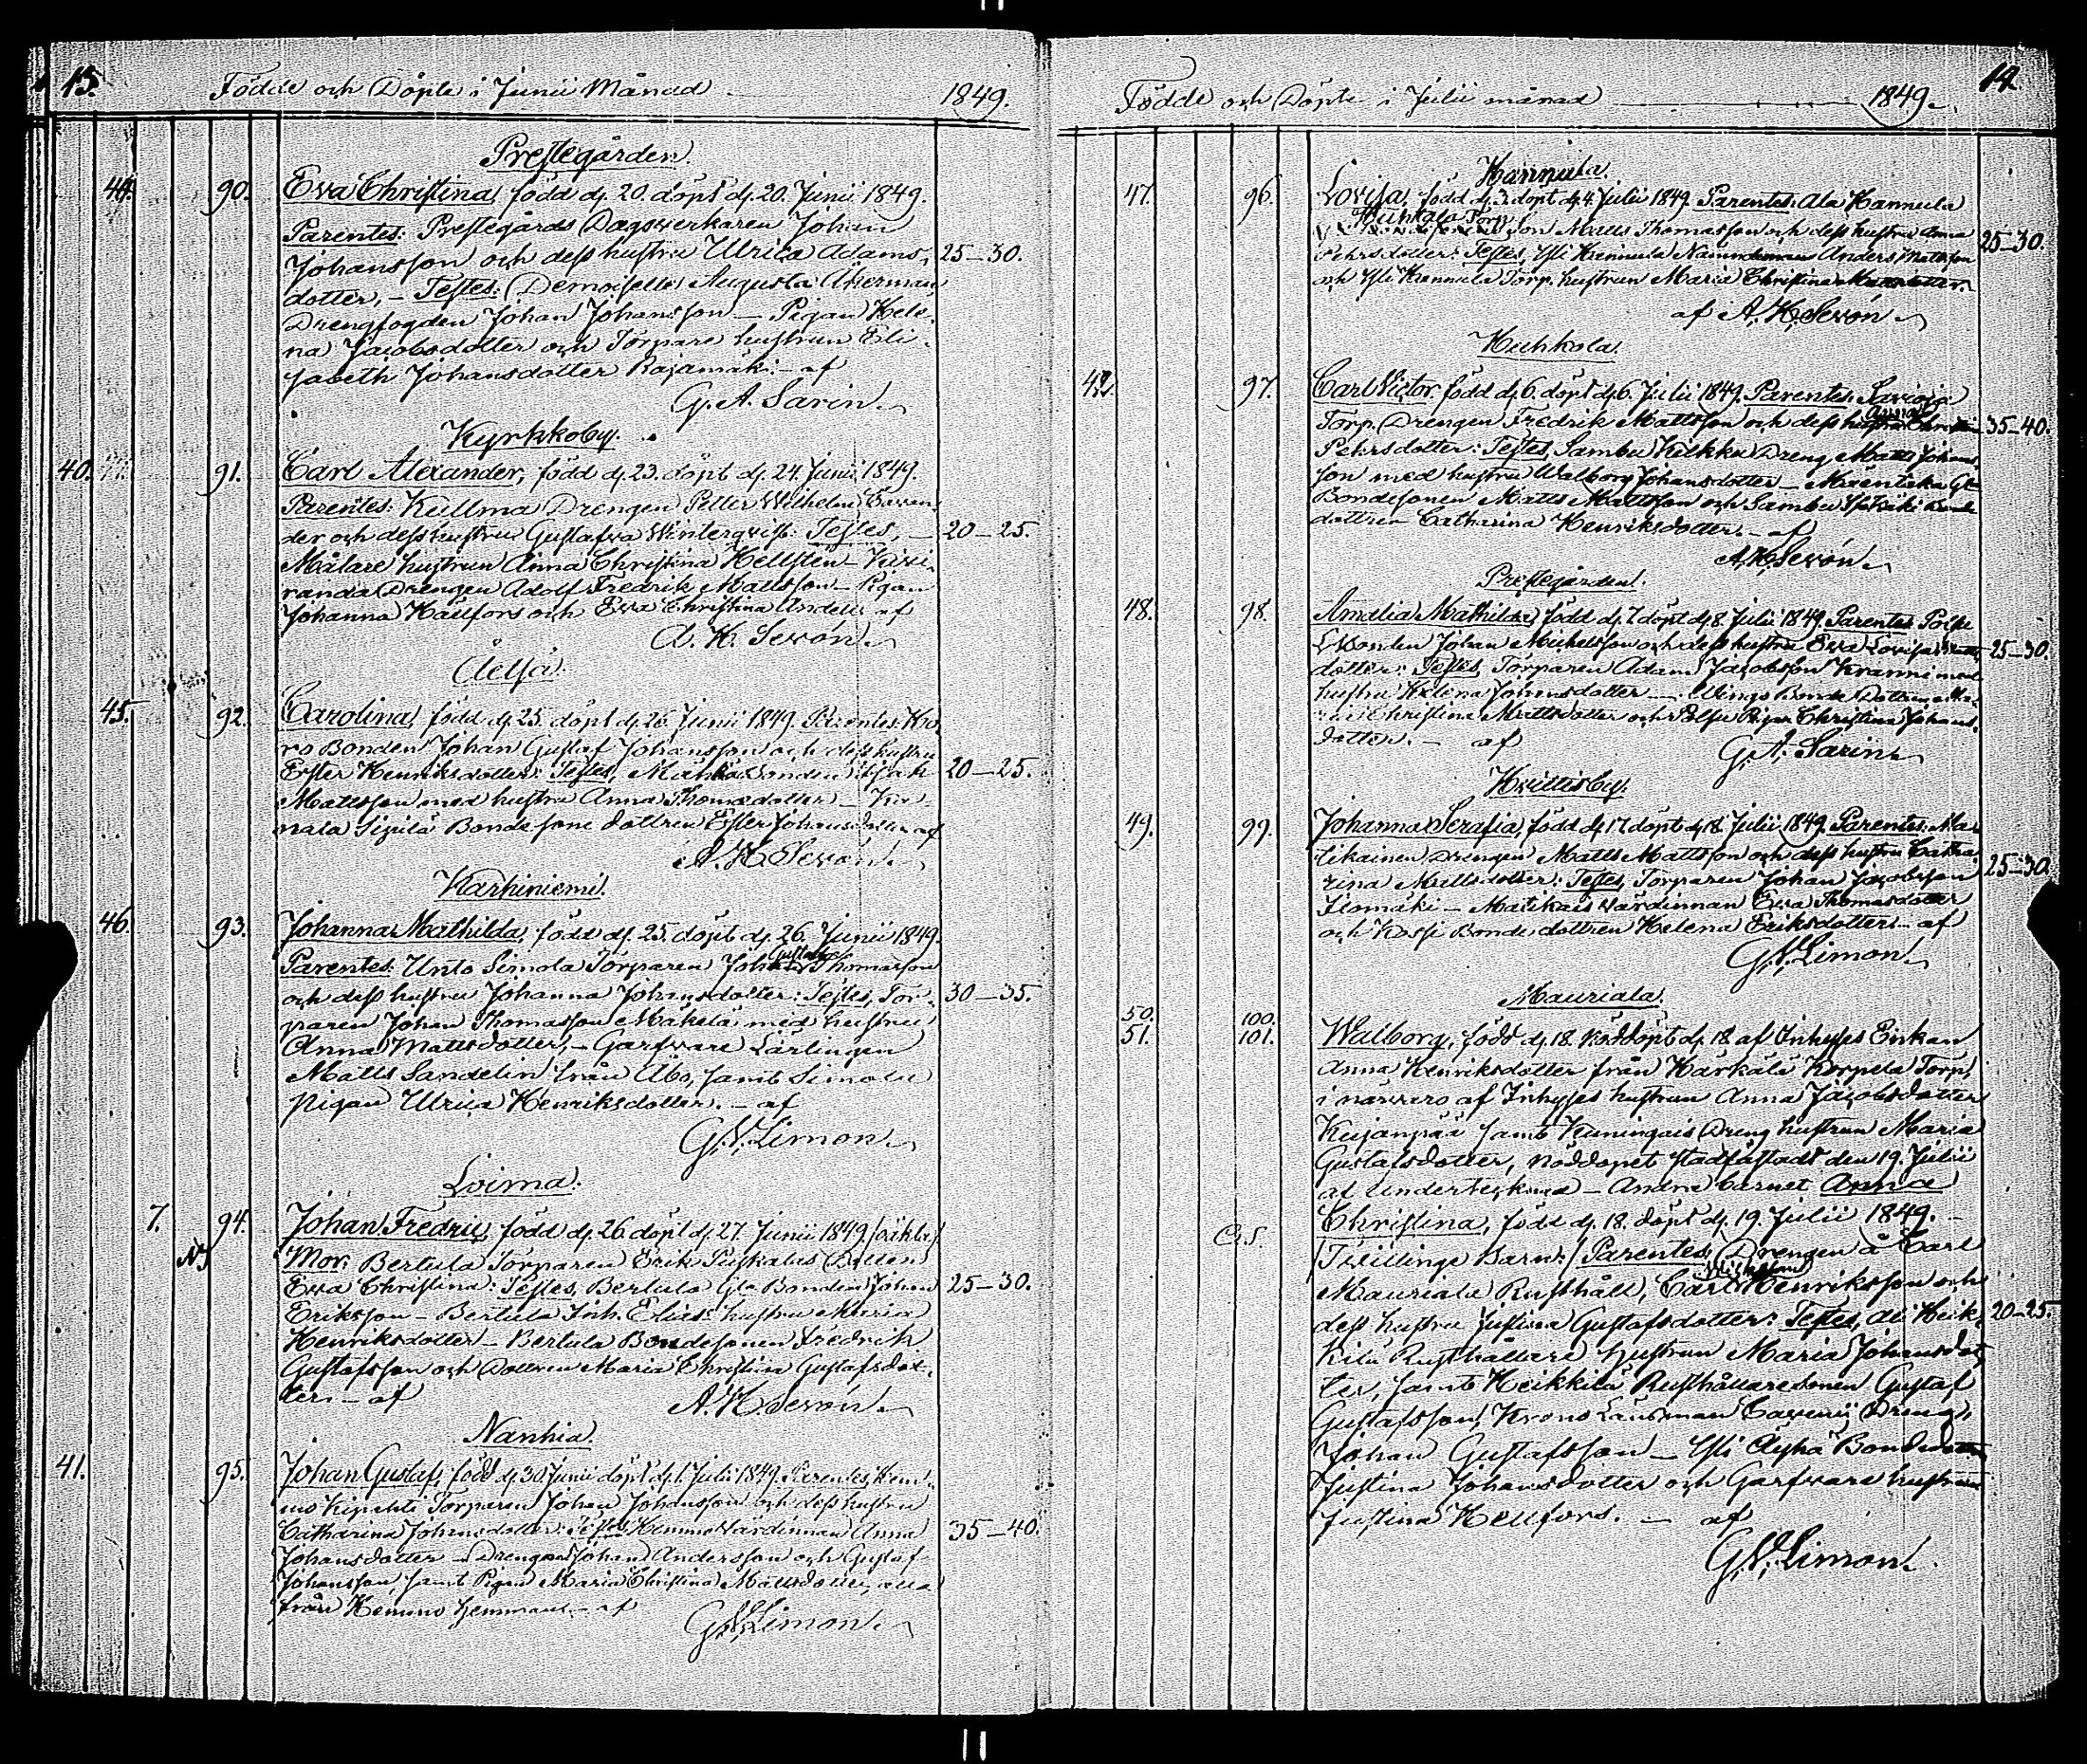 15. Födde och Döpte i Junii Månad 1849.
Prestegården.
44. 90. Eva Christina, född d. 20. döpt d. 20. Junii 1849.
Parentes: Prestegårds Dagsverkaren Johan
Johansson och dess hustru Ulrica Adams- 25–30.
dotter, – Testes: Demoiselle Augusta Åkerman,
Drengfogden Johan Johansson – Pigan Hele-
na Jacobsdotter och Torpare hustrun Eli-
sabeth Johansdotter Rajamäki. – af
G. A. Sarin.
Kyrkkoby.
40. 91. Carl Alexander, född d. 23. döpt d. 24. Junii 1849.
Parentes: Kullma Drengen Petter Wilhelm
der och dess hustru Gustafva Winterqvist: Testes, – 20–25.
Målare hustrun Anna Christina Hellsten – Kivi-
randa Drengen Adolf Fredrik Mattsson – Pigan
Johanna Hallfors och Eva Christina Andelin af
A. H. Sevón.
45. 92. Carolina, född d. 25. döpt d. 26. Junii 1849. Parentes:
ro Bonden Johan Gustaf Johansson och dess hustru
Ester Henriksdotter: Testes, Bonden 20–25.
Mattsson med hustru Anna Thomasdotter –
Bonde sone dottren Ester Johansdotter af
A. H. Sevón.
Karhiniemi.
46. 93. Johanna Mathilda, född d. 25. döpt d. 26. Junii 1849.
Gustaf
Parentes: Unto Simola Torparen Johan Thomasson
och dess hustru Johanna Johansdotter: Testes, Tor- 30–35.
paren Johan Thomasson Mäkelä med hustru
Anna Mattsdotter, – Garfvare Lärlingen
Matts Sandelin från Åbo, samt Simola
pigan Ulrica Henriksdotter. – af
G. V. Limon.
Loima.
7. 94. Johan Fredric, född d. 26 döpt d. 27. Junii 1849. /oäkta/
Mor: Bertula Torparen Erik Dotter
Eva Christina: Testes, Bertula Gla Bonden Johan 25–30.
Eriksson – Bertula Inh. Elias hustru Maria
Henriksdotter – Bertula Bondesonen Fredrik
Gustafsson och Dottren Maria Christina Gustafsdot-
ter. – af A. H. Sevón.
Nanhia.
41. 95. Johan Gustaf, född d. 30 Junii döpt d. 1. Julii 1849. Parentes, Hem-
mo Torparen Johan Johansson och dess hustru
Catharina Johansdotter: Testes, Hemmo Värdinnan Anna 35–40.
Johansdotter – Drengen Johan Andersson och Gustaf
Johansson, samt Pigan Maria Christina Mattsdotter, alla
från Hemmo hemman. – af
G. V. Limon.
14. Födde och Döpte i Julii månad 1849.
Hannula.
47. 96. Lovisa, född d. 3. döpt d. 4. Julii 1849. Parentes: Ala Hannula
Torp
son Matts Thomasson och dess hustru Anna 25–30.
Pehrsdotter: Testes, Yli Hannula Nämndeman Anders Mattsson
och Yli Hannula Torp. hustrun Maria Christina Mattsdotter.
af A. H. Sevón
Huhkola.
42. 97. Carl Victor, född d. 6. döpt d. 6. Julii 1849. Parentes: Savioja
Anna
Torp. Drengen Fredrik Mattsson och dess hustru 35–40.
Pehrsdotter: Testes, Sambu Kilkku Dreng Matts Johans-
son med hustru Walborg Johansdotter –
Bondesonen Matts Mattsson och Sambu
dottren Catharina Henriksdotter. – af
A. H. Sevón.
Prestegården.
48. 98. Amalia Mathilda, född d. 7. döpt d. 8. Julii 1849. Parentes:
Johan Michelsson och dess hustru Eva Lovisa 25–30.
dotter: Testes, Torparen Adam Jacobsson Kranni med
hustru Helena Johansdotter – Bonde Dottren Ma-
ria Christina Mattsdotter och Pigan Christina Johans-
dotter. – af G. A. Sarin.
Hvittisby.
49. 99. Johanna Serafia, född d. 17. döpt d. 18. Julii 1849. Parentes: Ma-
tikainen Drengen Matts Mattsson och dess hustru Catha- 25–30.
rina Mattsdotter: Testes, Torparen Johan Jacobsson
Ilomäki – Matikais värdinnan Eva Thomasdotter
och Bonde dottren Helena Eriksdotter. – af
G. V. Limon.
Mauriala.
50. 100.
51. 101. Walborg, född d. 18. Nöddöpt d. 18. af Inhyses Enkan
Anna Henriksdotter från Härkälä Korpela Torp,
i närvaro af Inhyses hustrun Anna Jacobsdotter
Kujanpää samt Kuningais Dreng hustrun Maria
Gustafsdotter, nöddopet stadfästadt den 19. Julii
af undertecknad – Andra barnet Anna
Christina, född d. 18. döpt d. 19. Julii 1849. –
/Tvillinge Barn:/ Parentes, Drengen å Carl
Mauriala Rusthåll, Carl Henriksson och
dess hustru Justina Gustafsdotter: Testes, Ali Heik- 20–25.
kilä Rusthållare hustrun Maria Johansdot-
ter, samt Heikkilä Rusthållaresonen Gustaf
Gustafsson, Krono Länsman Dreng.
Johan Gustafsson – Yli Äyhö Bondedotter
Justina Johansdotter och Garfvare hustrun
Justina Hellfors. – af
G. V. Limon.